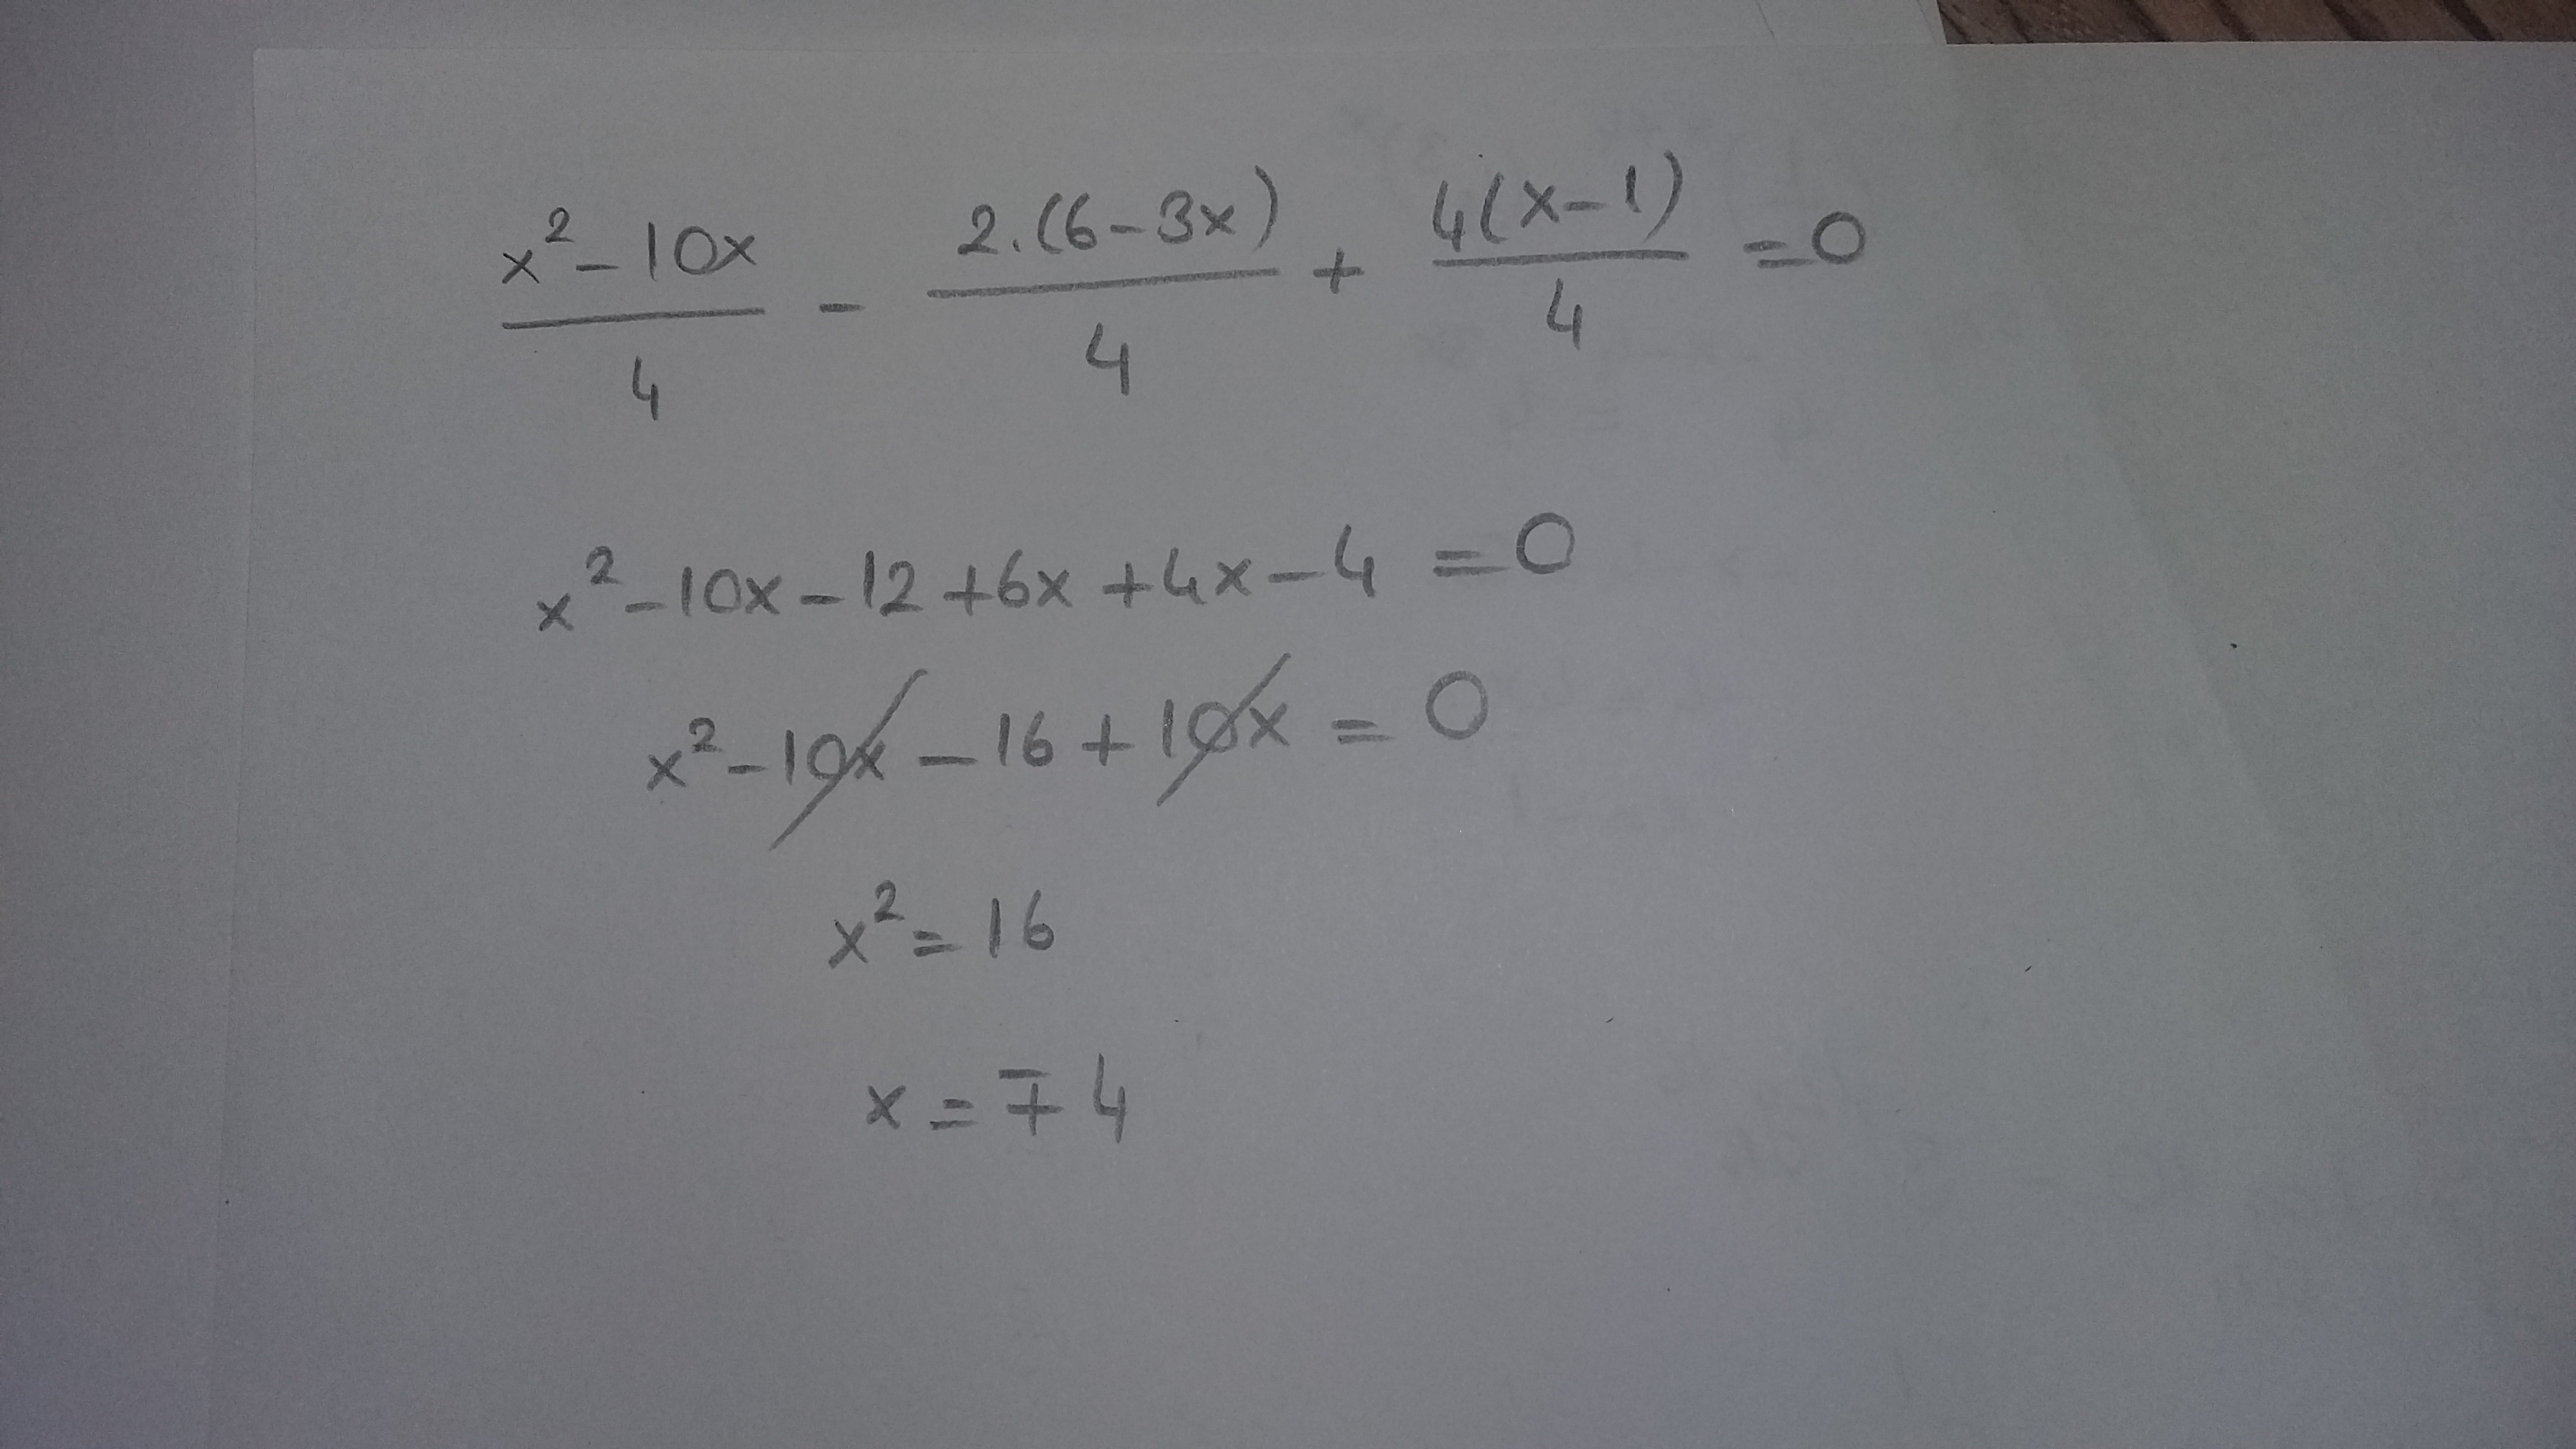 x² - 10x / 4 - 2.(6-3x) / 4 + 4(x-1) / 4 = 0
x² - 10x - 12 + 6x + 4x - 4 = 0
x² - 10x - 16 + 10x = 0
x² = 16
x = ∓ 4